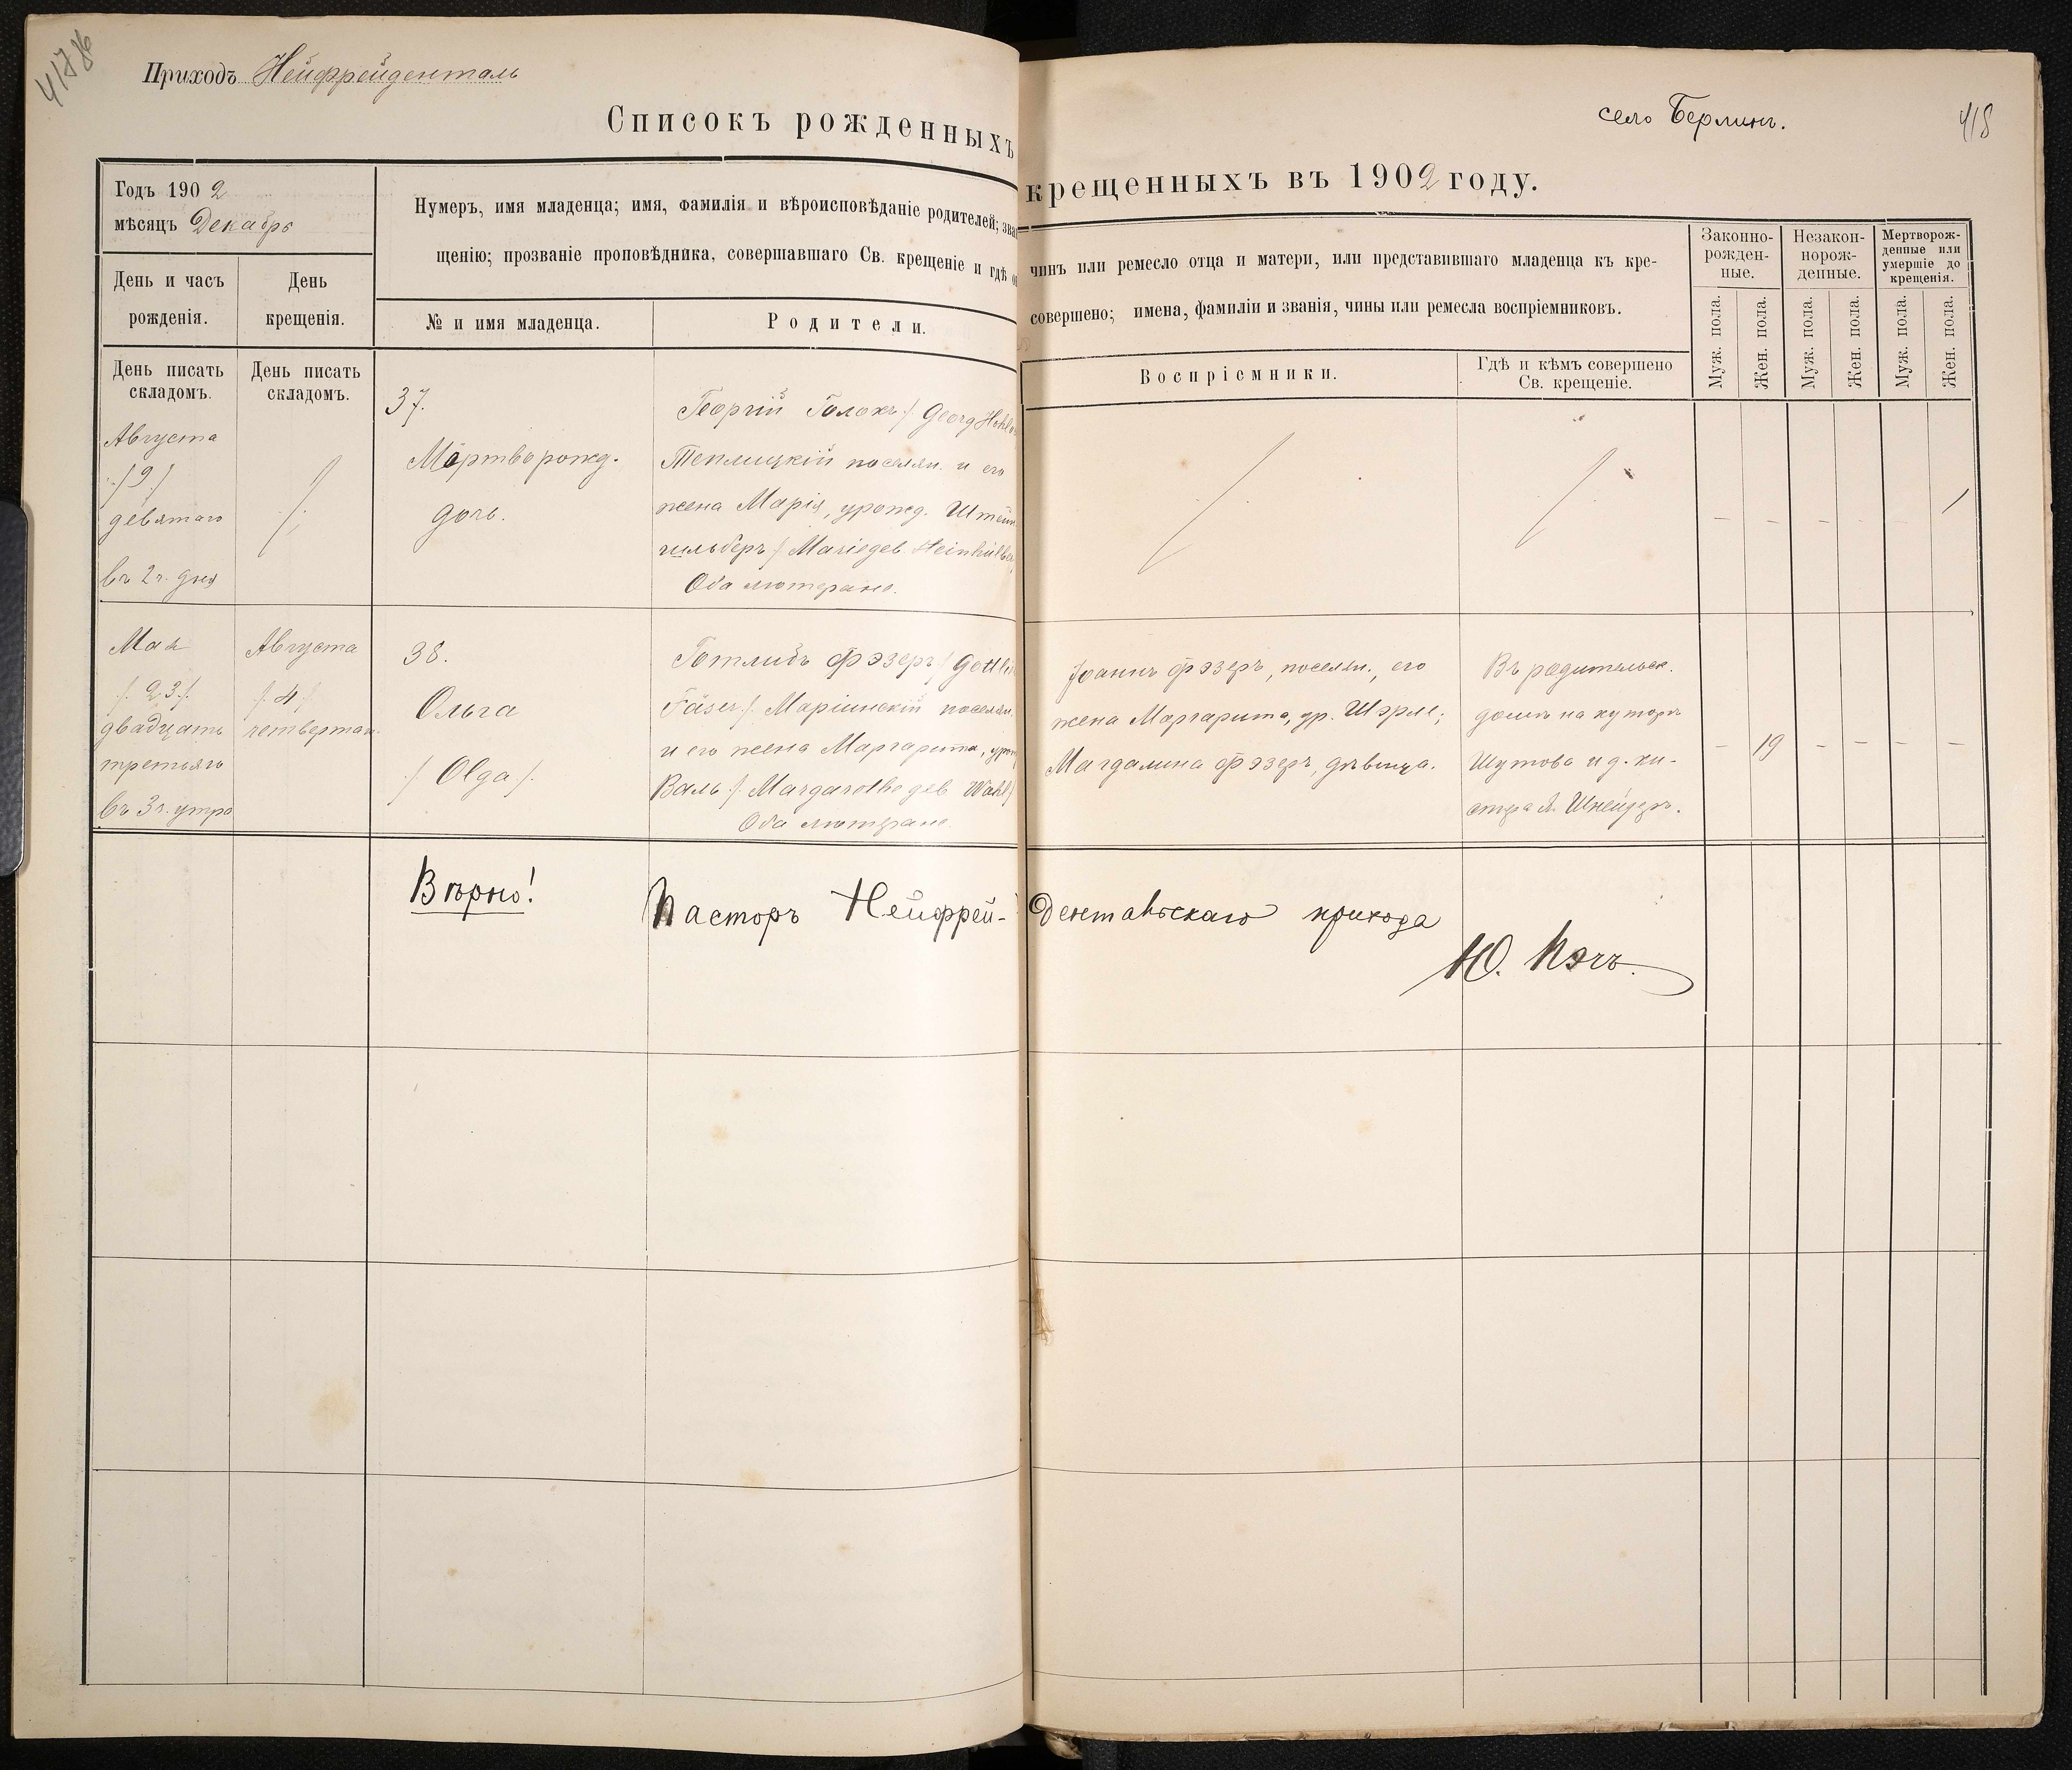 Приходъ Нейфрейденталь
Списокъ рожденныхъ
Годъ 1902
мѣсяцъ Декабрь
Нумеръ, имя младенца; имя, фамилія и вѣроисповѣданіе родителей;
щенію; прозваніе проповѣдника, совершавшаго Св. крещеніе и гдѣ
День и часъ
рожденія.
День
крещенія.
№ и имя младенца.
Родители.
День писать
складомъ.
День писать
складомъ.
Августа
/9/
девятаго
въ 2 ч. дня
37.
Мертворожд.
дочь.
Георгій Голохъ /. Georg
Теплицкій поселян. и его
жена Марія, урожд.
гильберъ /. Marie geb.
Оба лютеране.
Мая
/. 23 /.
двадцать
третьяго
въ 3 ч. утра
Августа
/. 4 /.
четвертаго
38.
Ольга
/ Olga /.
Готлибъ Фэзеръ /
Fäser /. Маріинскій поселян.
и его жена Маргарита,
Валь /. Margarethe geb. Wahl /
Оба лютеране.
Вѣрно!
Пасторъ Нейфрей-
село Берлинъ.
418
крещенныхъ въ 1902 году.
чинъ или ремесло отца и матери, или представившаго младенца къ кре-
совершено; имена, фамиліи и званія, чины или ремесла воспріемниковъ.
Воспріемники.
Гдѣ и кѣмъ совершено
Св. крещеніе.
Законно-
рожден-
ные.
Незакон-
норож-
денные.
Мертворож-
денные или
умершіе до
крещенія.
Муж. пола.
Жен. пола.
Муж. пола.
Жен. пола.
Муж. пола.
Жен. пола.
- - - - - /
Іоаннъ Фэзеръ, поселян., его
жена Маргарита, ур. Шэрле;
Магдалина Фэзеръ, дѣвица.
Въ родительск.
домѣ на хуторѣ
Шутова и д. ки-
стера Я. Шнейдеръ.
- 19 - - - -
дентальскаго прихода
Ю. Пэчъ.